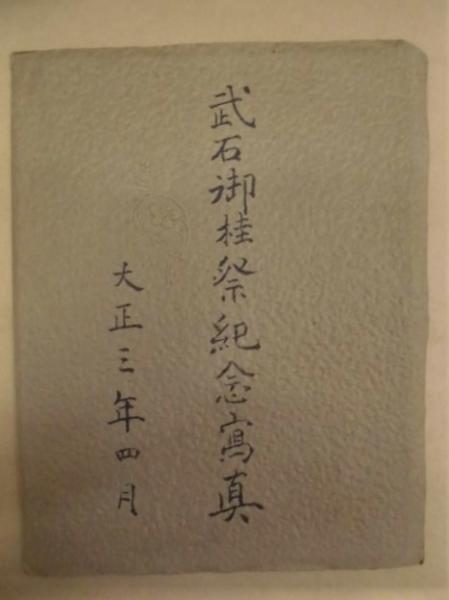 武石御柱祭紀念寫真
大正三年四月